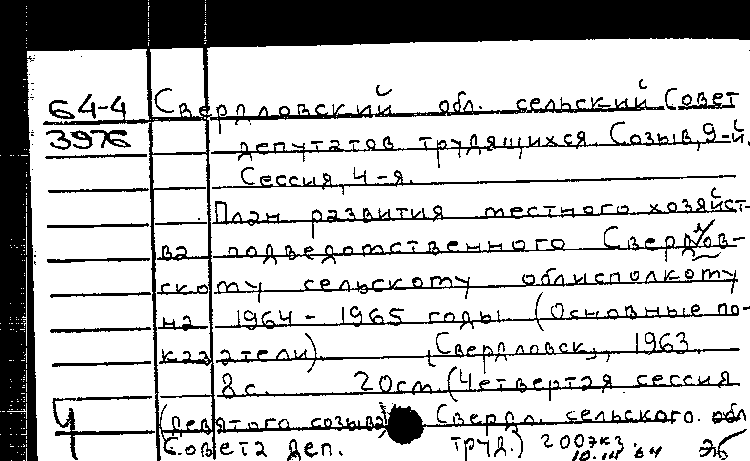 64-4 Свердловский обл. сельский Совет
3976 депутатов трудящихся. Созыв, 9-й.
Сессия, 4-я.
План развития местного хозяйст-
ва подведомственного Свердлов-
скому сельскому облисполкому
на 1964 - 1965 годы. (Основные по-
казатели). [Свердловск], 1963.
8 с. 20 см. (Четвертая сессия
Ч (девятого созыва) Свердл. сельского обл
Совета деп. труд.) 200 экз.
64